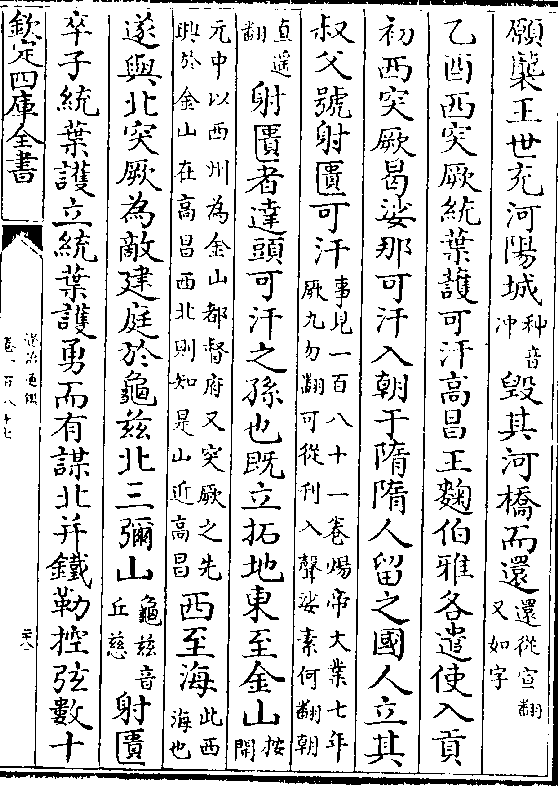 願襲王世充河陽城种音冲毁其河橋而還還從宣翻又如字
乙酉西突厥統葉䕶可汗高昌王麴伯雅各遣使入貢
初西突厥曷娑那可汗入朝于隋隋人留之國人立其
叔父號射匱可汗事見一百八十一卷煬帝大業七年厥九勿翻可從刋入聲娑素何翻朝
直遥翻射匱者達頭可汗之孫也既立拓地東至金山按開
元中以西州為金山都督府又突厥之先興於金山在高昌西北則知是山近高昌西至海此西海也
遂與北突厥為敵建庭於龜兹北三彌山龜兹音丘慈射匱
卒子統葉䕶立統葉䕶勇而有謀北并鐵勒控弦數十
欽定四庫全書
資治通鑑
卷一百八十七
二十八